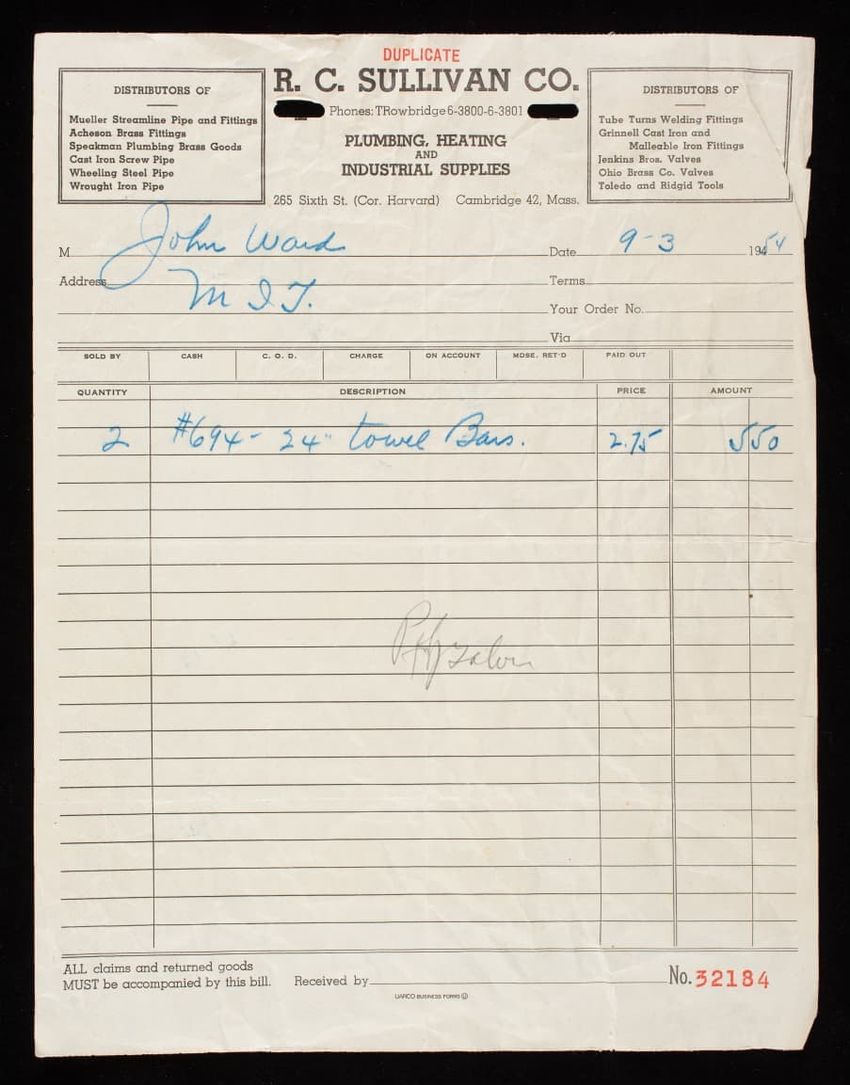 DUPLICATE
R. C. SULLIVAN CO.
Phones: TRowbridge 6-3800-6-3801
PLUMBING, HEATING
AND
INDUSTRIAL SUPPLIES
265 Sixth St. (Cor. Harvard) Cambridge 42, Mass.
DISTRIBUTORS OF
Mueller Streamline Pipe and Fittings
Acheson Brass Fittings
Speakman Plumbing Brass Goods
Cast Iron Screw Pipe
Wheeling Steel Pipe
Wrought Iron Pipe
DISTRIBUTORS OF
Tube Turns Welding Fittings
Grinnell Cast Iron and
Malleable Iron Fittings
Jenkins Bros. Valves
Ohio Brass Co. Valves
Toledo and Ridgid Tools
M John Ward Date 9-3 1954
Address M I T. Terms
Your Order No.
Via
SOLD BY CASH C. O. D. CHARGE ON ACCOUNT MDSE. RET'D PAID OUT
QUANTITY DESCRIPTION PRICE AMOUNT
2 #694- 24" towel Bars. 2.75 5 50
ALL claims and returned goods
MUST be accompanied by this bill. Received by No. 32184
UARCO BUSINESS FORMS